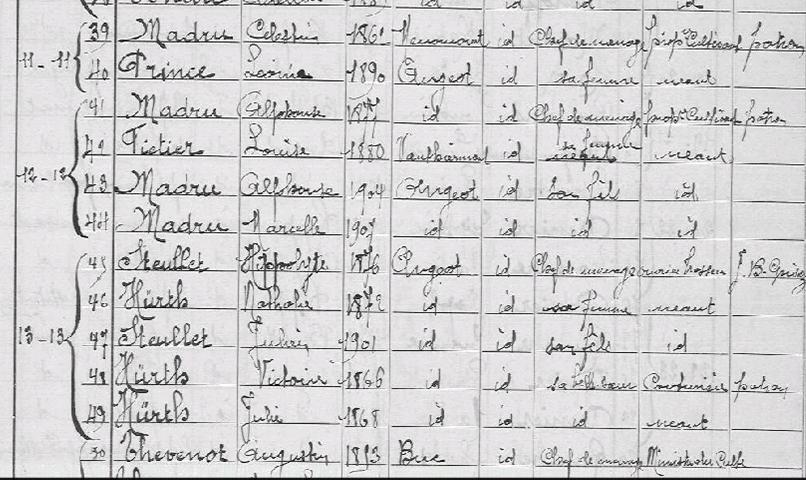 11-11 39 Madru Celestin 1861 id Chef de menage prop. Cultivat patron
40 Prince Leonie 1890 Angeot id sa femme neant
41 Madru Alphonse 1877 id id Chef de menage prop. Cultivat patron
12-12 42 Tictier Louise 1880 Vauthiermont id sa femme neant
43 Madru Alphonse 1904 Angeot id son fils id
44 Madru Marcelle 1907 id id id id
45 Meullet Hippolyte 1876 Angeot id Chef de menage
46 Hürth Nathalie 1872 id id sa femme neant
13-13 47 Meullet Julien 1901 id id son fils id
48 Hürth Victoire 1866 id id sa belle soeur Couturière patron
49 Hürth Julie 1868 id id id neant
50 Thevenot Augustin 1853 Buc id Chef de menage Ministre du Culte